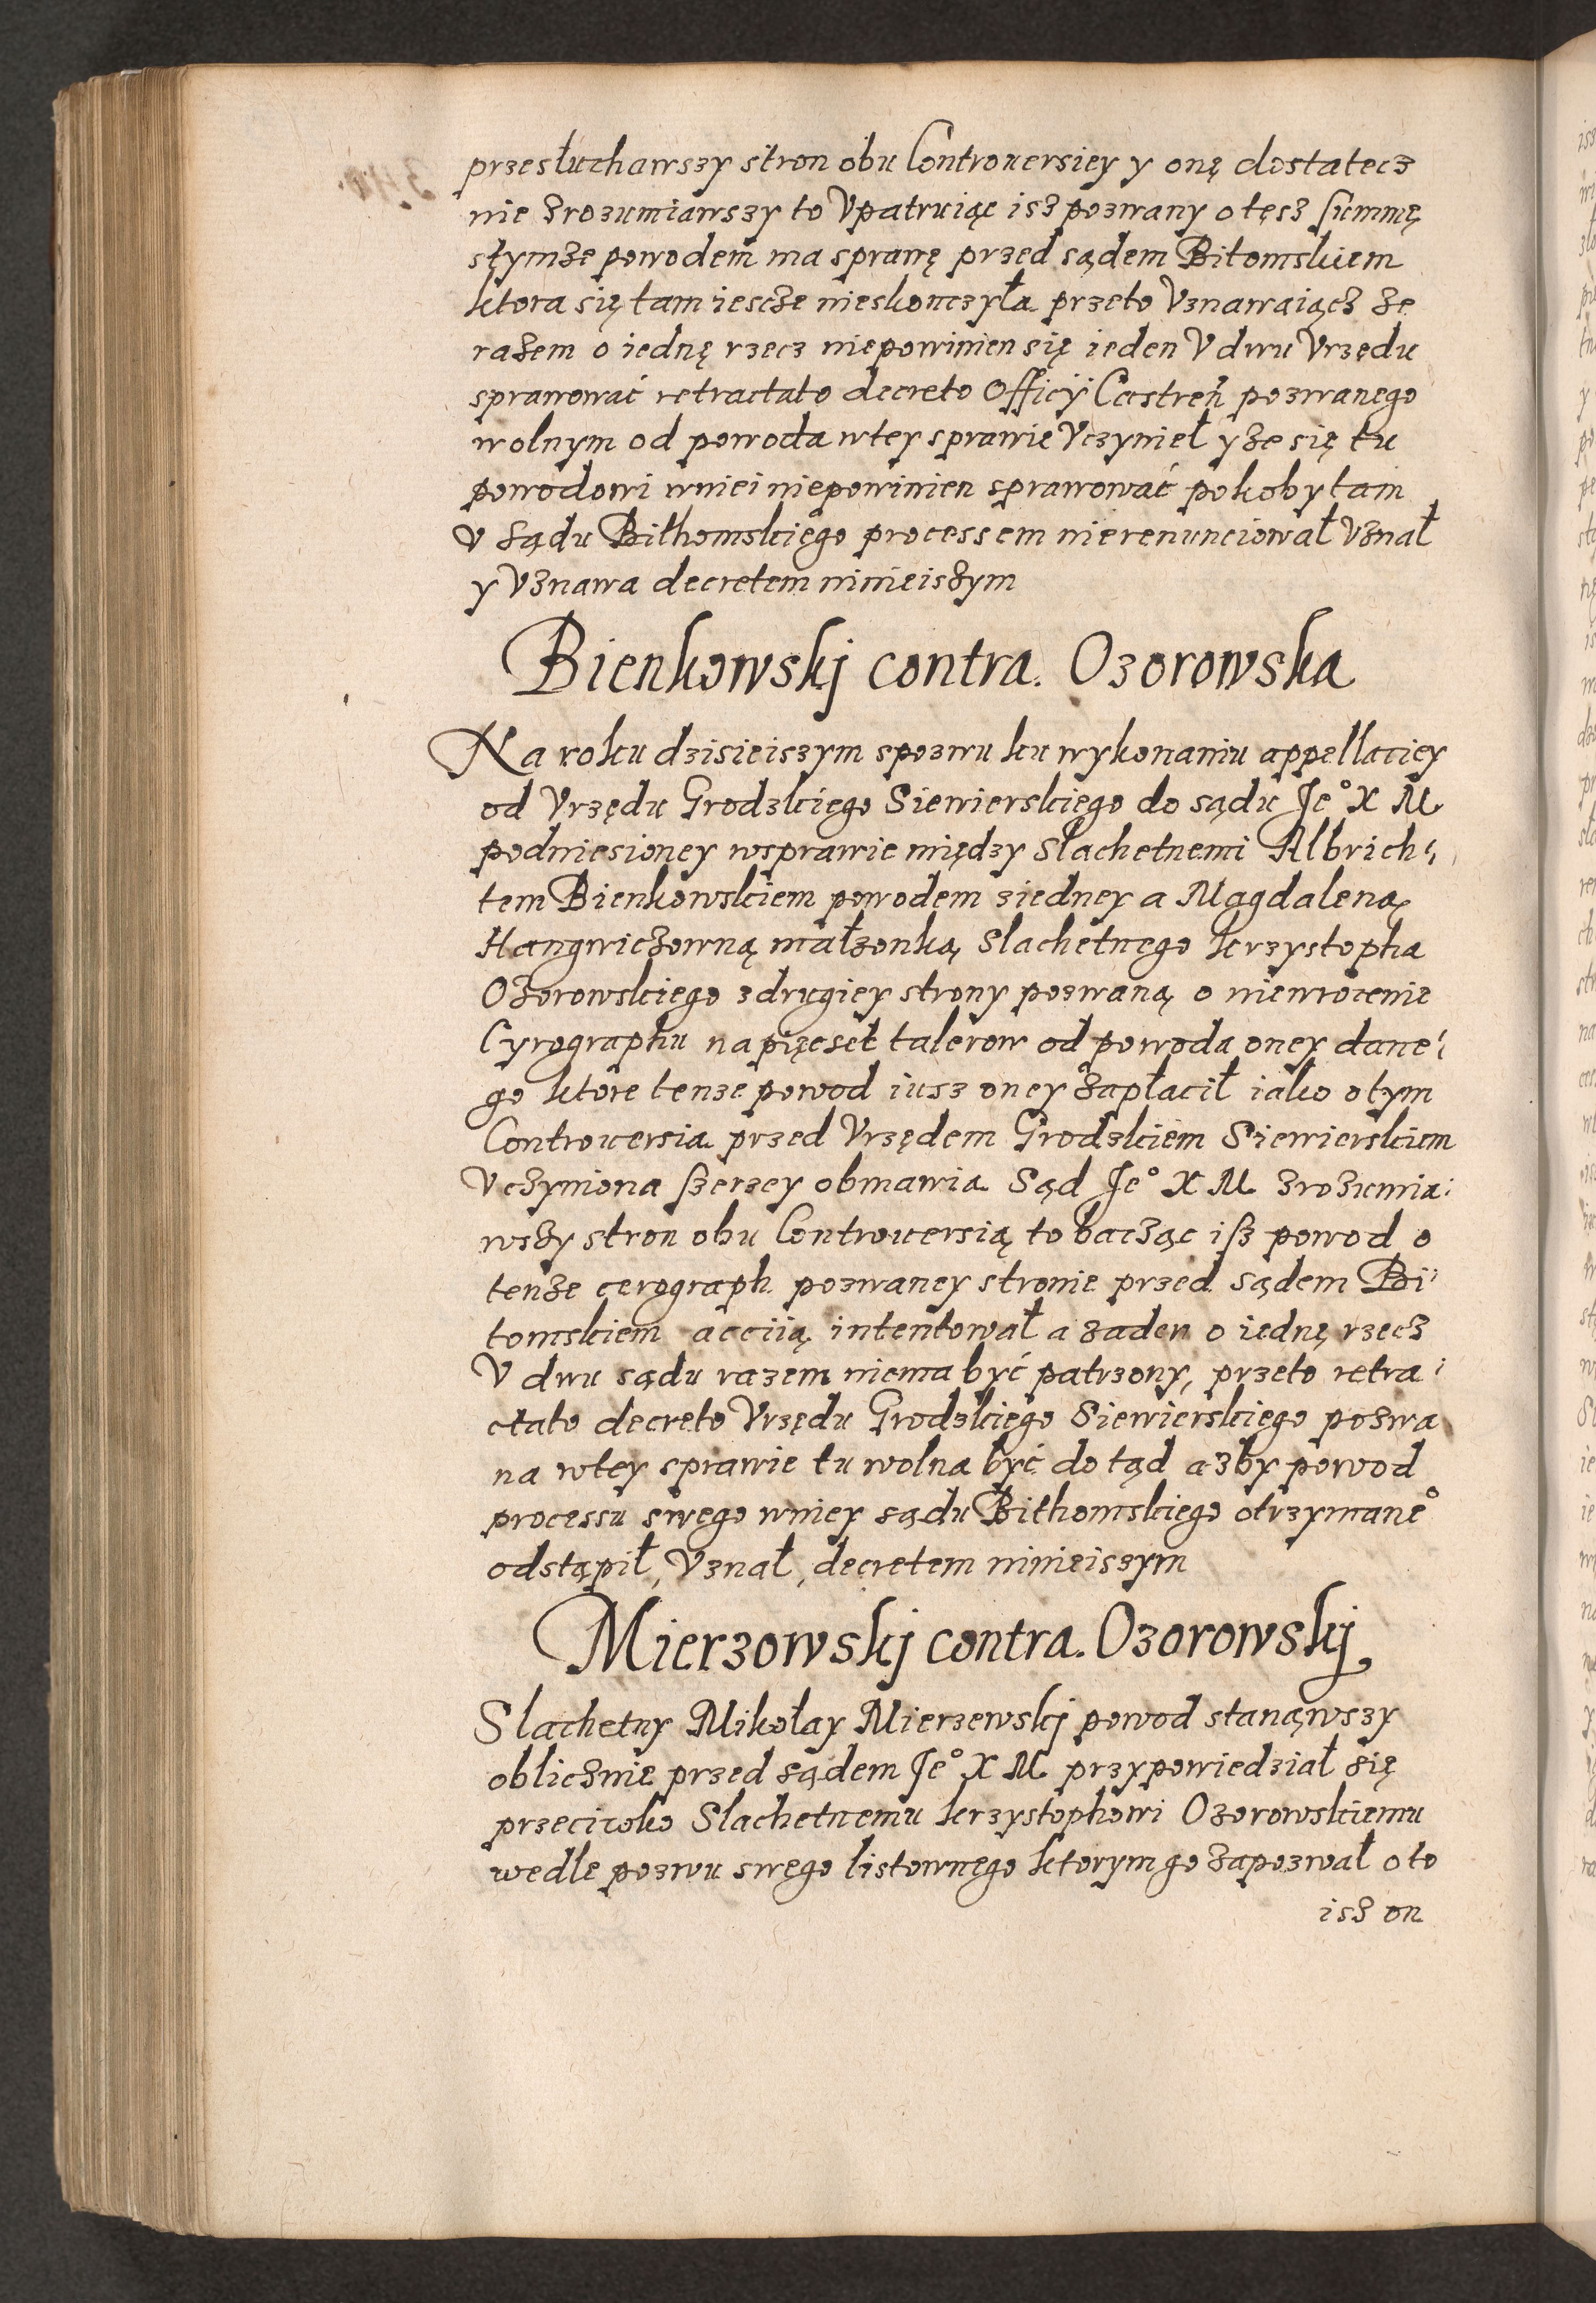 przesłuchawszy stron obu Controuersiey y onę dostatecz
nie zrozumiawszy to Vpatruiąc isz pozwany o tęsz summę
stymze powodem ma sprawę przed sądem Bitomskiem
ktora się tam iescze nieskonczyła przeto Vznawaiącz ze
razem o iednę rzecz niepowinien się ieden V dwu Vrzędu
sprawować retractato decreto Officÿ Castreñ pozwanego
wolnym od powoda wtey sprawie Vczynieł y ze się tu
powodowi wniei niepowinien sprawować pokoby tam
V sądu Bithomskiego processem nierenunciował Vznał
y Vznawa decretem ninieiszym
Bienkowskj contra. Ozorowska
Na roku dzisieiszym spozwu ku wykonaniu appellaciey
od Vrzędu Grodzkiego Siewierskiego do sądu Je° X M
podniesioney wsprawie między slachetnemi Albrich
tem Bienkowskiem powodem ziedney a Magdaleną
Hangwiczowną małzonką Slachetnego krzystopha
Ozorowskiego zdrugiey strony pozwaną o niewrocenie
Cyrographu na pięcset talerow od powoda oney dane
go ktore tenze powod iusz oney zapłacił iako o tym
Controuersia przed Vrzędem Grodzkiem Siewierskiem
Vczyniona szerzey obmawia Sąd Je° X M zrozumia:
wszy stron obu Controuersią to bacząc isz powod o
tenze cerograph pozwaney stronie przed sądem Bi
tomskiem acciią intentował a zaden o iednę rzecz
V dwu sądu razem niema być patrzony, przeto retra
ctato decreto Vrzędu Grodzkiego Siewierskiego pozwa
na wtey sprawie tu wolna być do tąd azby powod
processu swego wniey sądu Bithomskiego otrzymane°
odstąpił, Vznał, decretem ninieiszym
Mierzowskj contra. Ozorowskj
Slachetny Mikołay Mierzewskj powod stanąwszy
oblicznie przed sądem Je° X M przypowiedział się
przeciwko Slachetnemu krzystophowi Ozorowskiemu
wedle pozwu swego listownego ktorym go zapozwał o to
isz on